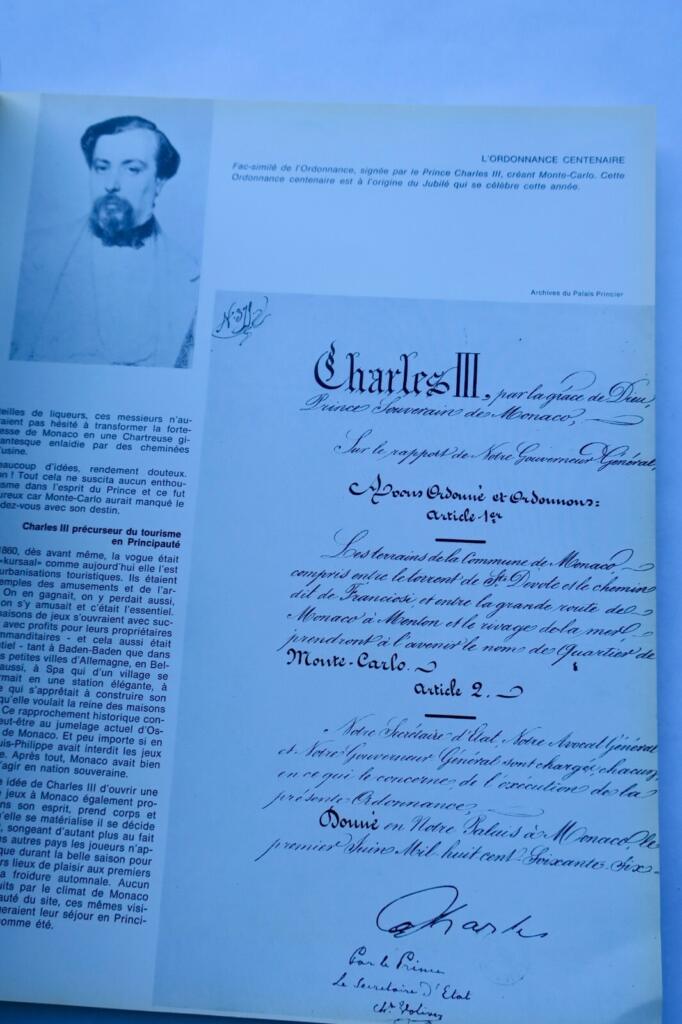 L'ORDONNANCE CENTENAIRE
Fac-similé de l'Ordonnance, signée par le Prince Charles III, créant Monte-Carlo. Cette
Ordonnance centenaire est à l'origine du Jubilé qui se célèbre cette année.
Archives du Palais Princier
eilles de liqueurs, ces messieurs n'au-
raient pas hésité à transformer la forte-
esse de Monaco en une Chartreuse gi-
antesque enlaidie par des cheminées
'usine.
eaucoup d'idées, rendement douteux.
n ! Tout cela ne suscita aucun enthou-
iasme dans l'esprit du Prince et ce fut
ureux car Monte-Carlo aurait manqué le
dez-vous avec son destin.
Charles III précurseur du tourisme
en Principauté
1860, dès avant même, la vogue était
«kursaal» comme aujourd'hui elle l'est
urbanisations touristiques. Ils étaient
emples des amusements et de l'ar-
On en gagnait, on y perdait aussi,
on s'y amusait et c'était l'essentiel.
aisons de jeux s'ouvraient avec suc-
avec profits pour leurs propriétaires
mmanditaires - et cela aussi était
tiel - tant à Baden-Baden que dans
s petites villes d'Allemagne, en Bel-
aussi, à Spa qui d'un village se
rmait en une station élégante, à
e qui s'apprêtait à construire son
qu'elle voulait la reine des maisons
Ce rapprochement historique con-
eut-être au jumelage actuel d'Os-
de Monaco. Et peu importe si en
uis-Philippe avait interdit les jeux
e. Après tout, Monaco avait bien
'agir en nation souveraine.
e idée de Charles III d'ouvrir une
e jeux à Monaco également pro-
ns son esprit, prend corps et
'elle se matérialise il se décide
, songeant d'autant plus au fait
ns autres pays les joueurs n'ap-
que durant la belle saison pour
rs lieux de plaisir aux premiers
a froidure automnale. Aucun
uits par le climat de Monaco
auté du site, ces mêmes visi-
geraient leur séjour en Princi-
omme été.
N: 371
Charles III, par la grâce de Dieu,
Prince Souverain de Monaco,
Sur le rapport de Notre Gouverneur Général,
Avons Ordonné et Ordonnons:
Article 1er
Les terrains de la Commune de Monaco
compris entre le torrent de Ste Dévote et le chemin
dit de Franciosi, et entre la grande route de
Monaco à Menton et le rivage de la mer
prendront à l'avenir le nom de Quartier de
Monte-Carlo.
Article 2.
Notre Secrétaire d'État, Notre Avocat Général
et Notre Gouverneur Général sont chargés, chacun
en ce qui le concerne, de l'exécution de la
présente Ordonnance,
Donné en Notre Palais à Monaco, le
premier Juin Mil huit cent Soixante-Six
Charles
Par le Prince
Le Secrétaire d'Etat